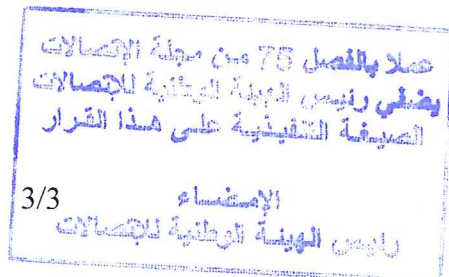 عملا بالفصل 75 من مجلة الإتصالات
يضفي رئيس الهيئة الوطنية للإتصالات
الصيغة التنفيذية على هذا القرار
3/3
الإمضاء
رئيس الهيئة الوطنية للإتصالات